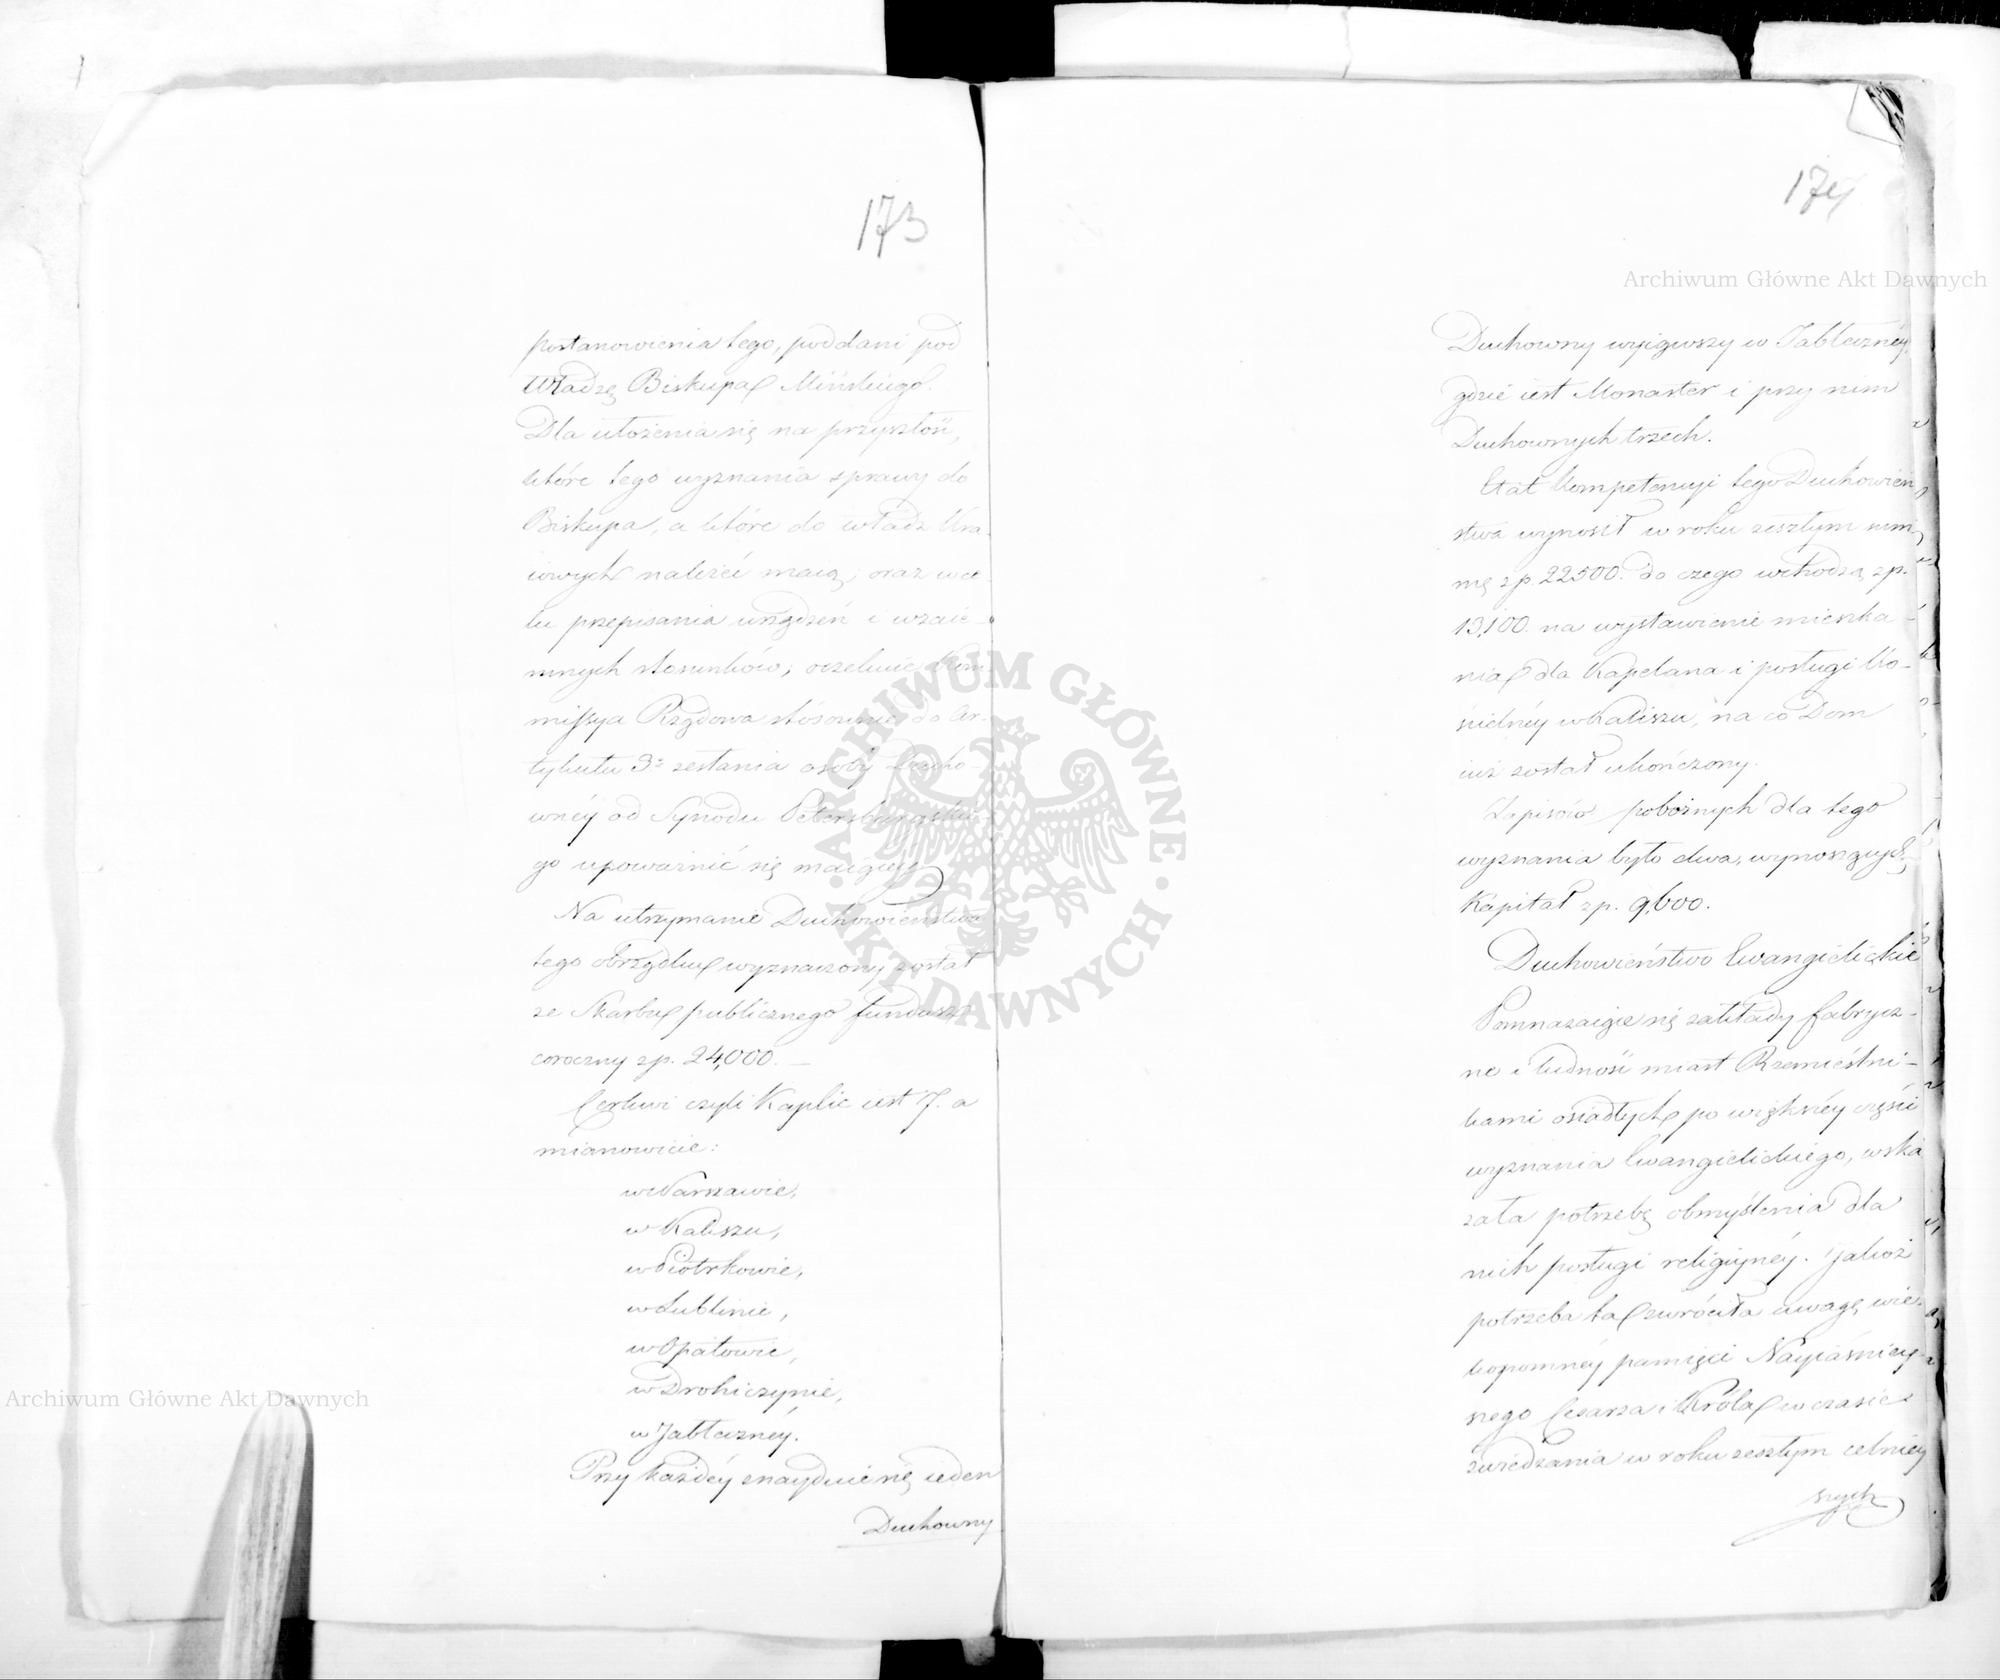 173
postanowienia tego, poddani pod
Władzę Biskupa Mińskiego.
Dla ułożenia się na przyszłość,
które tego wyznania sprawy do
Biskupa, a które do władz Kra-
iowych należeć maią; oraz w ce
lu przepisania urządzeń i wzaie-
mnych stosunków, oczekuie Kom
missya Rządowa stósownie do Ar-
tykułu 3º zesłania osoby Ducho-
wnéy od Synodu Petersburgskie
go upoważnić się maiącéy
Na utrzymanie Duchowieństwa
tego obrządku wyznaczony został
ze Skarbu publicznego fundusz
coroczny zp. 24,000. —
Cerkwi czyli Kaplic iest 7. a
mianowicie:
w Warszawie,
w Kaliszu,
w Piotrkowie,
w Lublinie,
w Opatowie,
w Drohiczynie,
w Jabłecznéy.
Przy każdéy znayduie się ieden
Duchowny
174
Duchowny wyiąwszy w Jabłecznéy,
gdzie iest Monaster i przy nim
Duchownych trzech.
Etat kompetencyi tego Duchowień
stwa wynosił w roku zeszłym sum
mę zp 22500. do czego wchodzą zp.
13,100. na wystawienie mieszka-
nia dla Kapelana i posługi Ko-
ścielnéy w Kaliszu, na co Dom
iuż został ukończony.
Zapisów pobożnych dla tego
wyznania było dwa, wynoszących
Kapitał zp. 9,600.
Duchowieństwo Ewangielickie
Pomnażaiące się zakłady fabrycz-
ne i ludność miast Rzemieślni-
kami osiadłych po większéy części
wyznania Ewangielickiego, wska
zała potrzebę obmyślenia dla
nich posługi religiynéy. Jakoż
potrzeba ta zwróciła uwagę wie-
kopomnéy pamięci Nayiaśniey-
szego Cesarza i Króla w czasie
zwiedzania w roku zeszłym celniey
szych
Archiwum Główne Akt Dawnych
Archiwum Główne Akt Dawnych
ARCHIWUM GŁÓWNE · AKT DAWNYCH ·